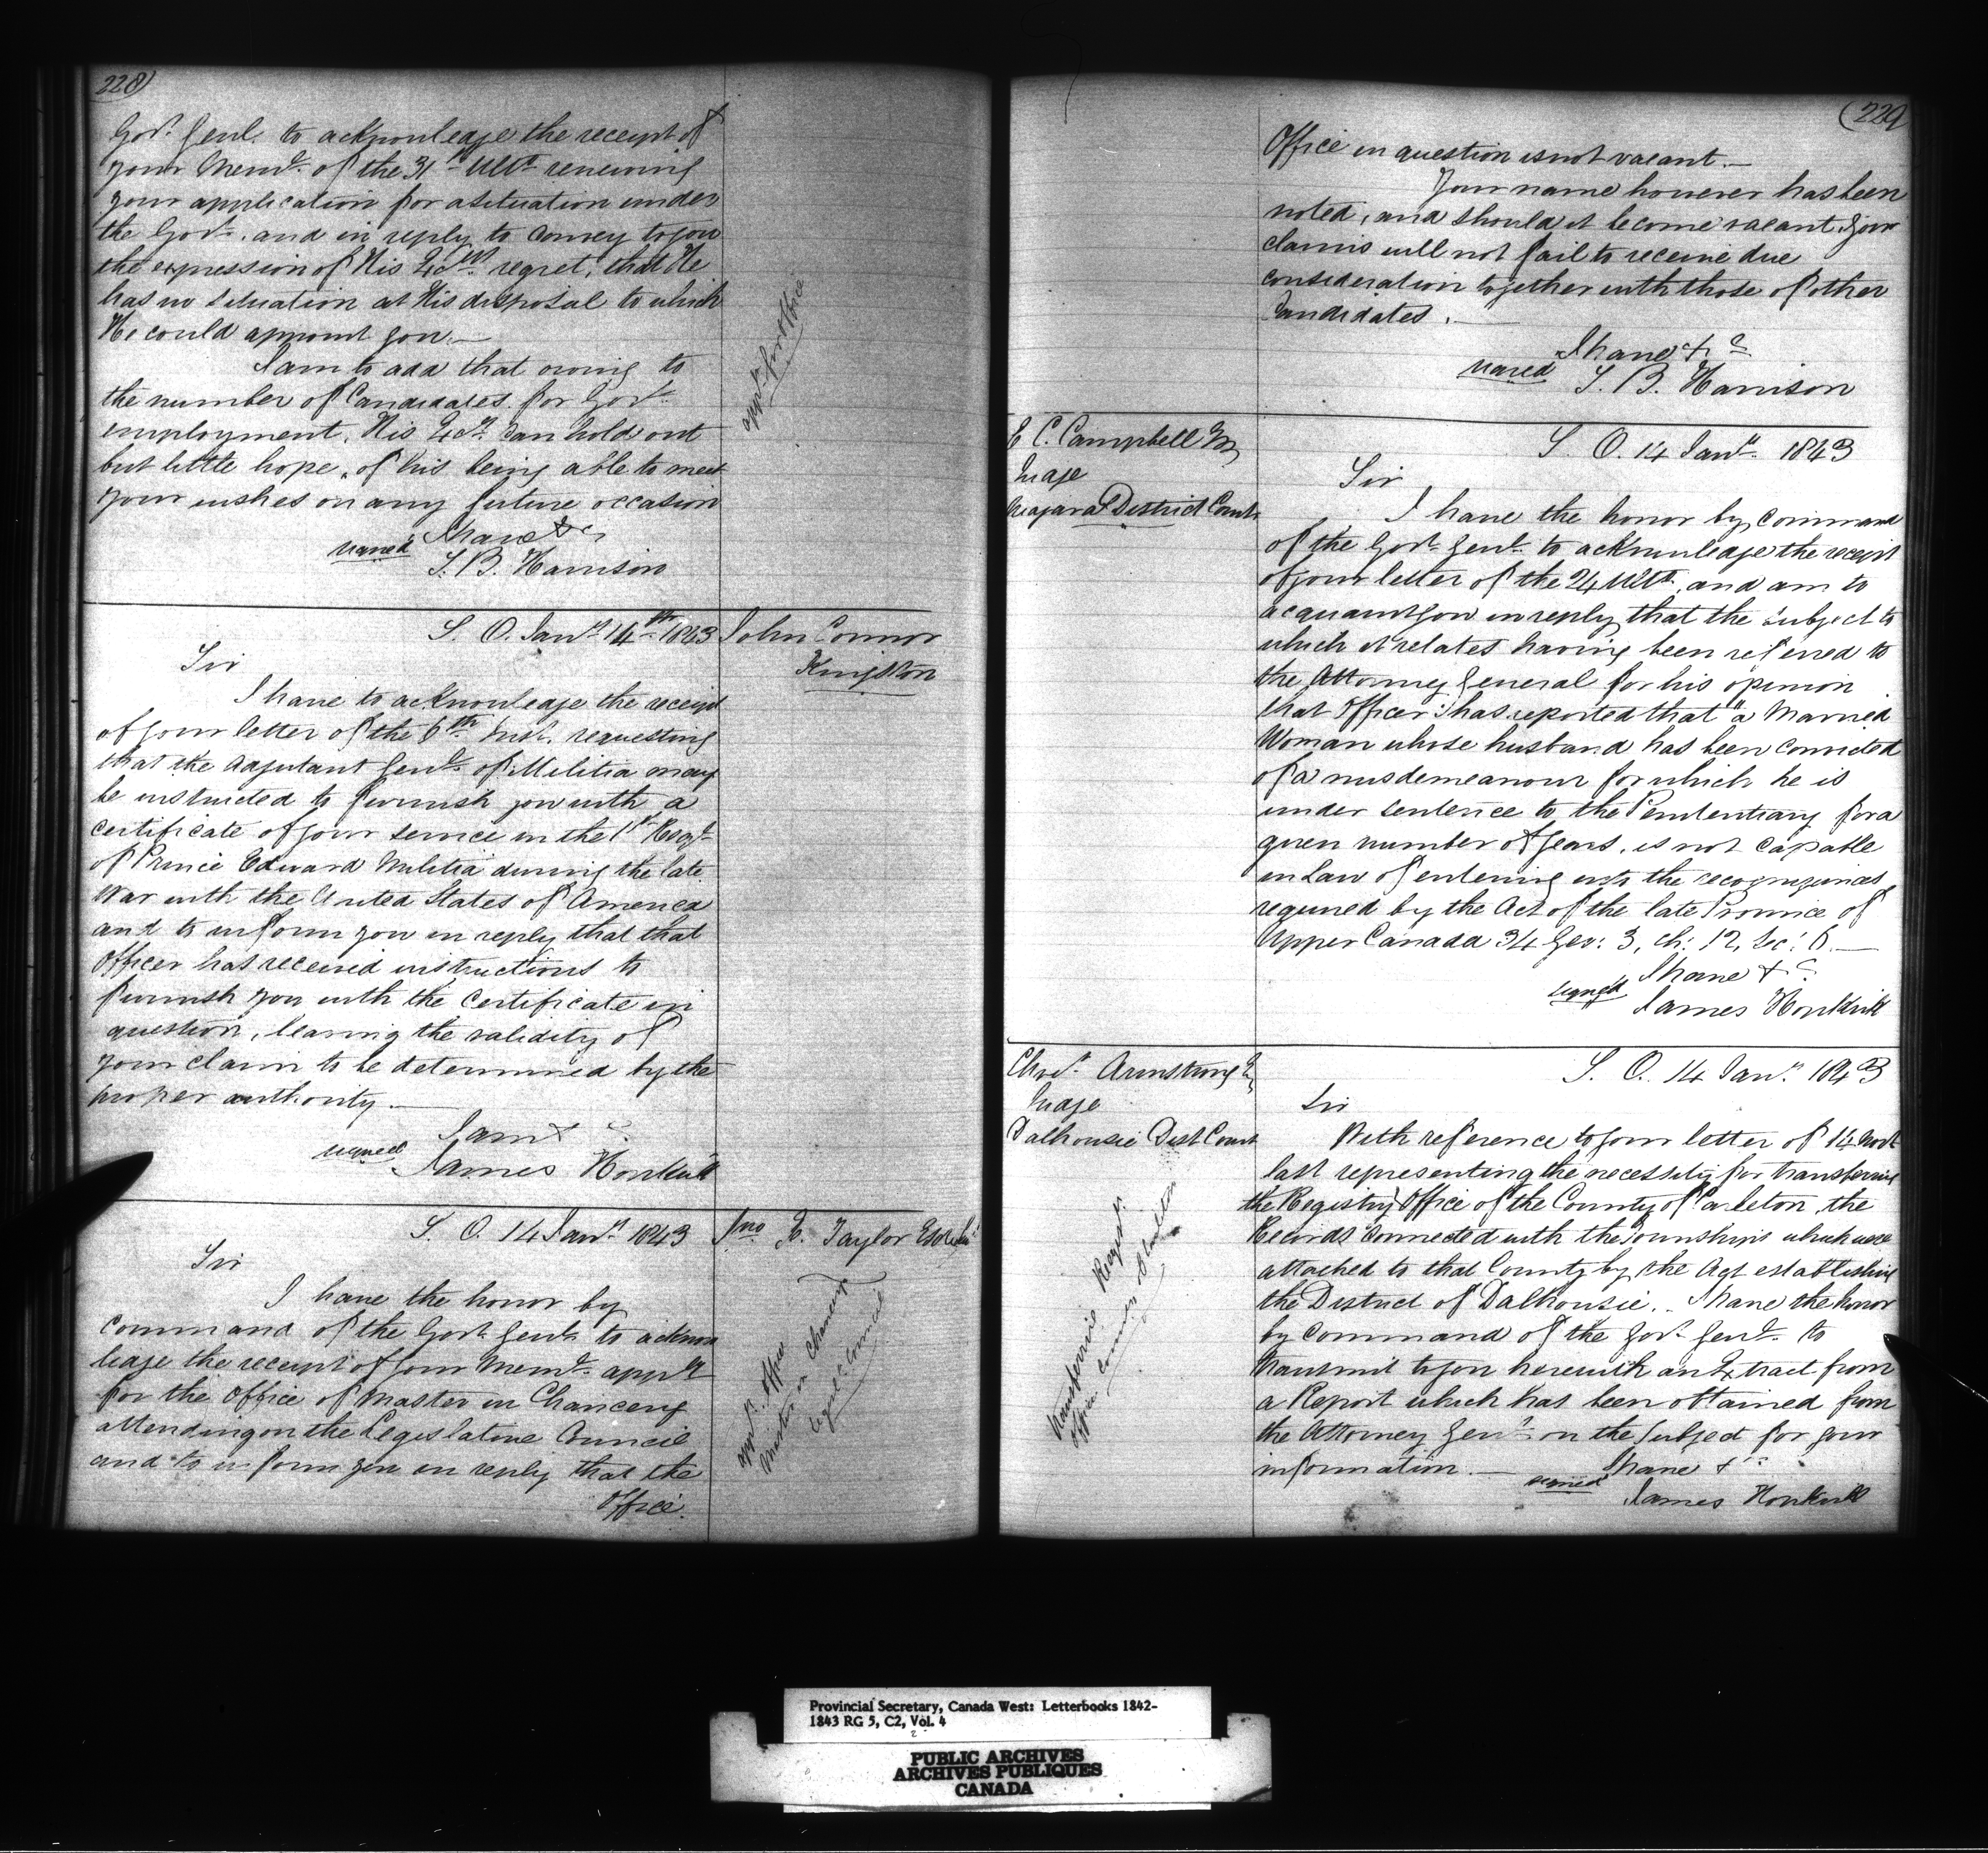 228)
Govr. Genl. to acknowledge the receipt of
your Meml. of the 31st Ulto. renewing
your application for a situation under
the Govt. and in reply to convey to you
the expression of His Excys. regret, that He
has no situation at His disposal to which
He could appoint you.—
I am to add that owing to
the number of Candidates for Govt.
employment, His Excy. can hold out
but little hope, of his being able to meet
your wishes on any future occasion
I have &c
signed S. B. Harrison
appn. for Office
S. O. Jany. 14th 1843
John Connor
Kingston
Sir
I have to acknowledge the receipt
of your letter of the 6th Inst. requesting
that the Adjutant Genl. of Militia may
be instructed to furnish you with a
certificate of your service in the 1st Regt.
of Prince Edward Militia during the late
War with the United States of America
and to inform you in reply that that
Officer has received instructions to
furnish you with the Certificate in
question, leaving the validity of
your claim to be determined by the
proper authority.—
I am &c.
signed James Hopkirk
S. O. 14 Jany. 1843
Jno. F. Taylor Esqr.
Sir
I have the honor by
Command of the Govr. Genl. to acknow
ledge the receipt of your Meml. appn.
for the Office of Master in Chancery
attending on the Legislative Council
and to inform you in reply that the
Office.
appn. Office
Master in Chancery
Legisl. Council
(229
Office in question is not vacant.—
Your name however has been
noted, and should it become vacant, your
claims will not fail to receive due
consideration together with those of other
Candidates.—
I have &c
signed S. B. Harrison
E C. Campbell Esq
Judge
Niagara District Court
S. O. 14 Jany. 1843
Sir
I have the honor by command
of the Govr. Genl. to acknowledge the receipt
of your letter of the 24 Ulto. and am to
acquaint you in reply that the subject to
which it relates having been referred to
the Attorney General for his opinion
that Officer has reported that "a Married
Woman whose husband has been convicted
of a misdemeanour for which he is
under sentence to the Penitentiary for a
given number of years, is not capable
in Law of entering into the recognizances
required by the Act of the late Province of
Upper Canada 34 Geo: 3, ch: 12, Sec: 6.—
I have &c.
signed James Hopkirk
Chrisr. Armstrong Esq
Judge
Dalhousie Dist Court
S. O. 14 Jany. 1843
Sir
With reference to your letter of 14 Novr.
last representing the necessity for transferring
the Registry Office of the County of Carleton, the
Records connected with the Townships which were
attached to that County by the Act establishing
the District of Dalhousie. I have the honor
by Command of the Govr. Genl. to
transmit to you herewith an Extract from
a Report which has been obtained from
the Attorney Genl. on the Subject for your
information.—
I have &c
signed James Hopkirk
transferring Regist.
Office County of Carleton
Provincial Secretary, Canada West: Letterbooks 1842-
1843 RG 5, C2, Vol. 4
PUBLIC ARCHIVES
ARCHIVES PUBLIQUES
CANADA